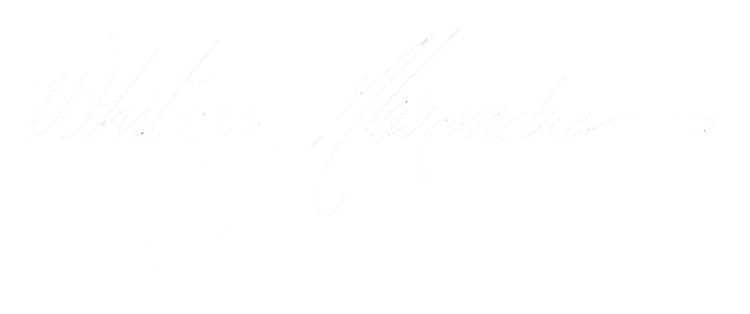 Whitney Alexandra